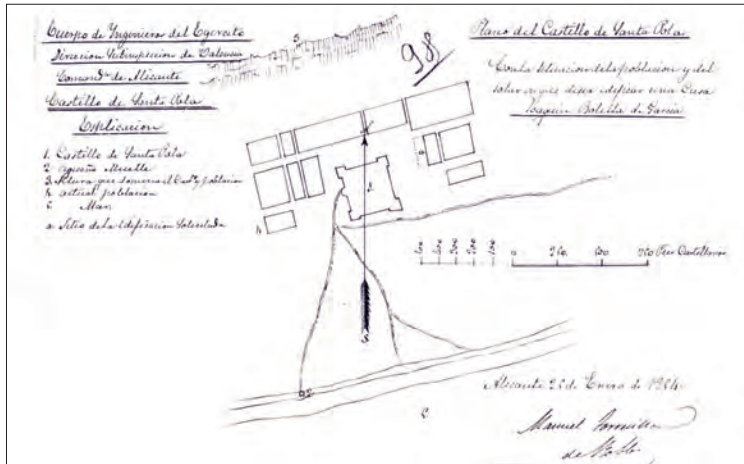 Cuerpo de Ingenieros del Egercito
Direccion Subinspeccion de Valencia
Comand.ª de Alicante
Castillo de Santa Pola
Esplicacion
1. Castillo de Santa Pola
2 Muelle
3. Altura que domina el Cast.º y poblacion
4 actual poblacion
C Mar
a Sitio de la Edificacion Solicitada
98
Plano del Castillo de Santa Pola
Con la situacion de la poblacion y del
solar en que desea edificar una Casa
Joaquin Bonilla de Garcia
3
N
a
1
4
S
2
C
Pies Castellanos
Alicante 26 de Enero de
Manuel